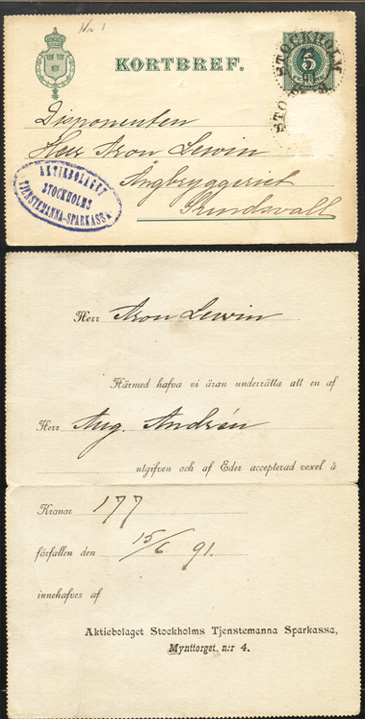 No 1
KORTBREF.
5
STOCKHOLM
Disponenten
Herr Aron Lewin
Ångbryggeriet
Sundsvall
AKTIEBOLAGET
STOCKHOLMS
TJENSTEMANNA-SPARKASSA
Herr Aron Lewin
Härmed hafva vi äran underrätta att en af
Herr Aug. Andrén
utgifven och af Eder accepterad vexel å
Kronor 177
förfallen den 15/6 91.
innehafves af
Aktiebolaget Stockholms Tjenstemanna Sparkassa,
Mynttorget, n:r 4.